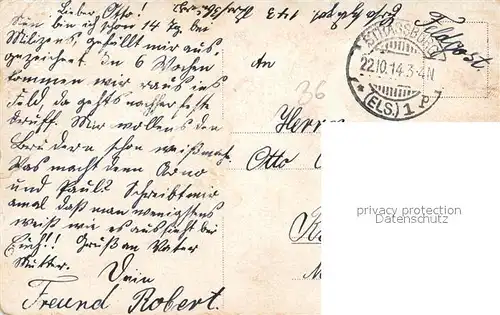 Lieber Otto!
Nun bin ich schon 14 Tg. bei
Milizens, gefällt mir aus
gezeichnet. In 6 Wochen
kommen wir raus ins
Feld, da gehts nachher feste
druff. Wir wollens den
Brüdern schon weißmachen.
Was macht denn Arno
und Paul? Schreibt mir
amal daß man wenigstens
weiß wie es aussieht bei
Euch!! Gruß an Vater
Mutter.
Dein
Freund Robert.
143
Feldpost.
STRASSBURG
22.10.14.3-4N
* (ELS.) 1 p
36
An
Herrn
Otto
privacy protection
Datenschutz